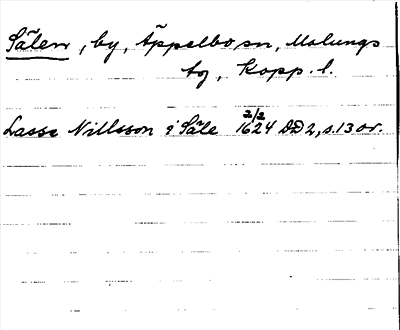 Sälen, by, Äppelbo sn, Malungs
tg, Kopp. l.
Lasse Nillsson i Säle 2/2 1624 DD2, s. 13 or.